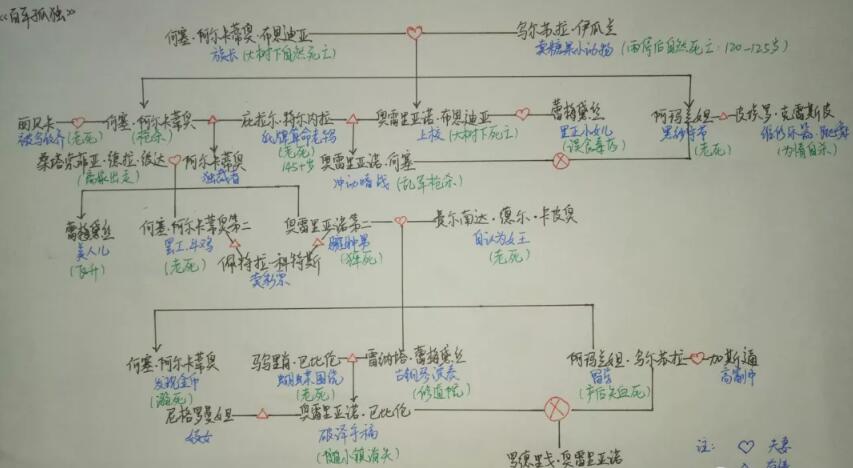 《百年孤独》
何塞·阿尔卡蒂奥·布恩迪亚 乌尔苏拉·伊瓜兰
族长(大树下自然死亡) 卖糖果小动物 (雨停后自然死亡:120-125岁)
丽贝卡 何塞·阿尔卡蒂奥 庇拉尔·特尔内拉 奥雷里亚诺·布恩迪亚 蕾梅黛丝 阿玛兰妲 皮埃罗·克雷斯皮
被乌收养(老死) (枪杀) 纸牌算命老妈 上校(大树下死亡) 里正小女儿 黑纱守节
(老死) (误食毒药) (老死) (为情自杀)
145+岁
桑塔索菲亚·德拉·彼达 阿尔卡蒂奥 奥雷里亚诺·何塞
(离家出走) 独裁者 冲动暗战 (乱军枪杀)
蕾梅黛丝 何塞·阿尔卡蒂奥第二 奥雷里亚诺第二 费尔南达·德尔·卡皮奥
美人儿 罢工.斗鸡 自认为女王
(飞升) (老死) 佩特拉·科特斯 (猝死) (老死)
卖彩票
何塞·阿尔卡蒂奥 马乌里肖·巴比伦 雷纳塔·蕾梅黛丝 阿玛兰妲·乌尔苏拉 加斯通
发现金币 蝴蝶围绕 古钢琴演奏 留学
(溺死) (老死) (修道院) (产后失血死)
尼格罗曼妲 奥雷里亚诺·巴比伦
妓女 破译手稿
(随小镇消失)
罗德里戈·奥雷里亚诺
注: 夫妻